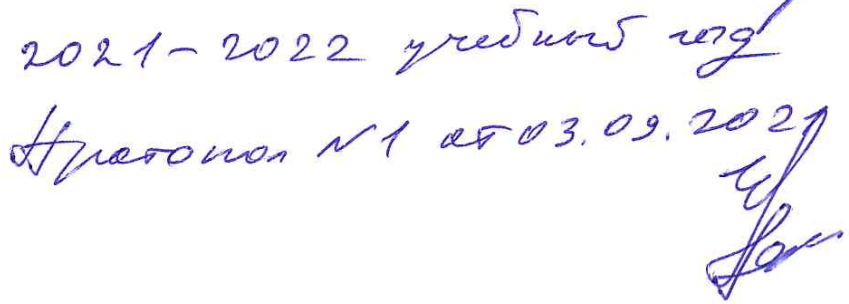 2021-2022 учебный год
Протокол №1 от 03.09.2021